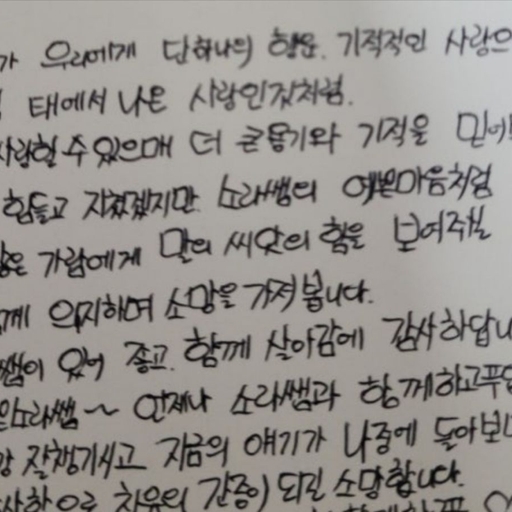 가 우리에게 단하나의 힘은. 기적적인 사랑으
태에서 나온 사랑인것처럼.
사랑할 수 있으매 더 큰용기와 기적을 믿어
힘들고 지쳤겠지만 소라쌤의 예쁜마음처럼
같은 가람에게 말의 씨앗의 힘을 보여주실
께 의지하며 소망을 가져 봅니다.
쌤이 있어 좋고. 함께 살아감에 감사하답니
소라쌤~ 언제나 소라쌤과 함께하고푸
잘챙기시고 지금의 얘기가 나중에 돌아보
치유의 간증이 되길 소망합니다.